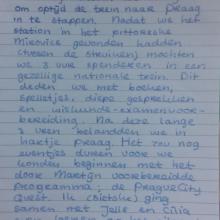 om optijd de trein naar Praag
in te stappen. Nadat we het
station in het pittoreske
Mirovice gevonden hadden
(tussen de struiken) mochten
we 3 uur spenderen in een
gezellige nationale trein. Dit
deden we met boeken,
spelletjes, diepe gesprekken
en wiskunde-examenvoor-
bereiding. Na deze lange
3 uren belandden we in
hartje Praag. Het zou nog
eventjes duren voor we
konden beginnen met het
door Martijn voorbereidde
programma; de Prague City
Quest. Ik (Sietske) ging
samen met Jelle en